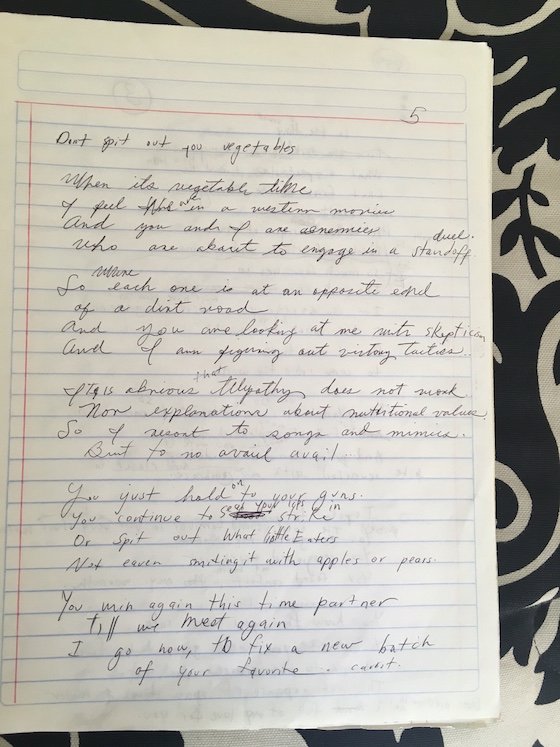 5
Dont spit out you vegetables
When its vegetable time
I feel we in a western movie
And you and I are enemies
duel.
who are about to engage in a standoff.
where
So each one is at an opposite end
of a dirt road
And you are looking at me with skepticism
And I am figuring out victory tactics.
that
It is obvious Telepathy does not work
Nor explanations about nutritional values
So I resort to songs and mimics.
But to no avail avail..
on
You just hold to your guns.
seal your lips in
You continue to strike
Or spit out What little Eaters
Not eaven mixting it with apples or pears.
You win again this time partner
till we meet again
I go now, to fix a new batch
of your favorite.